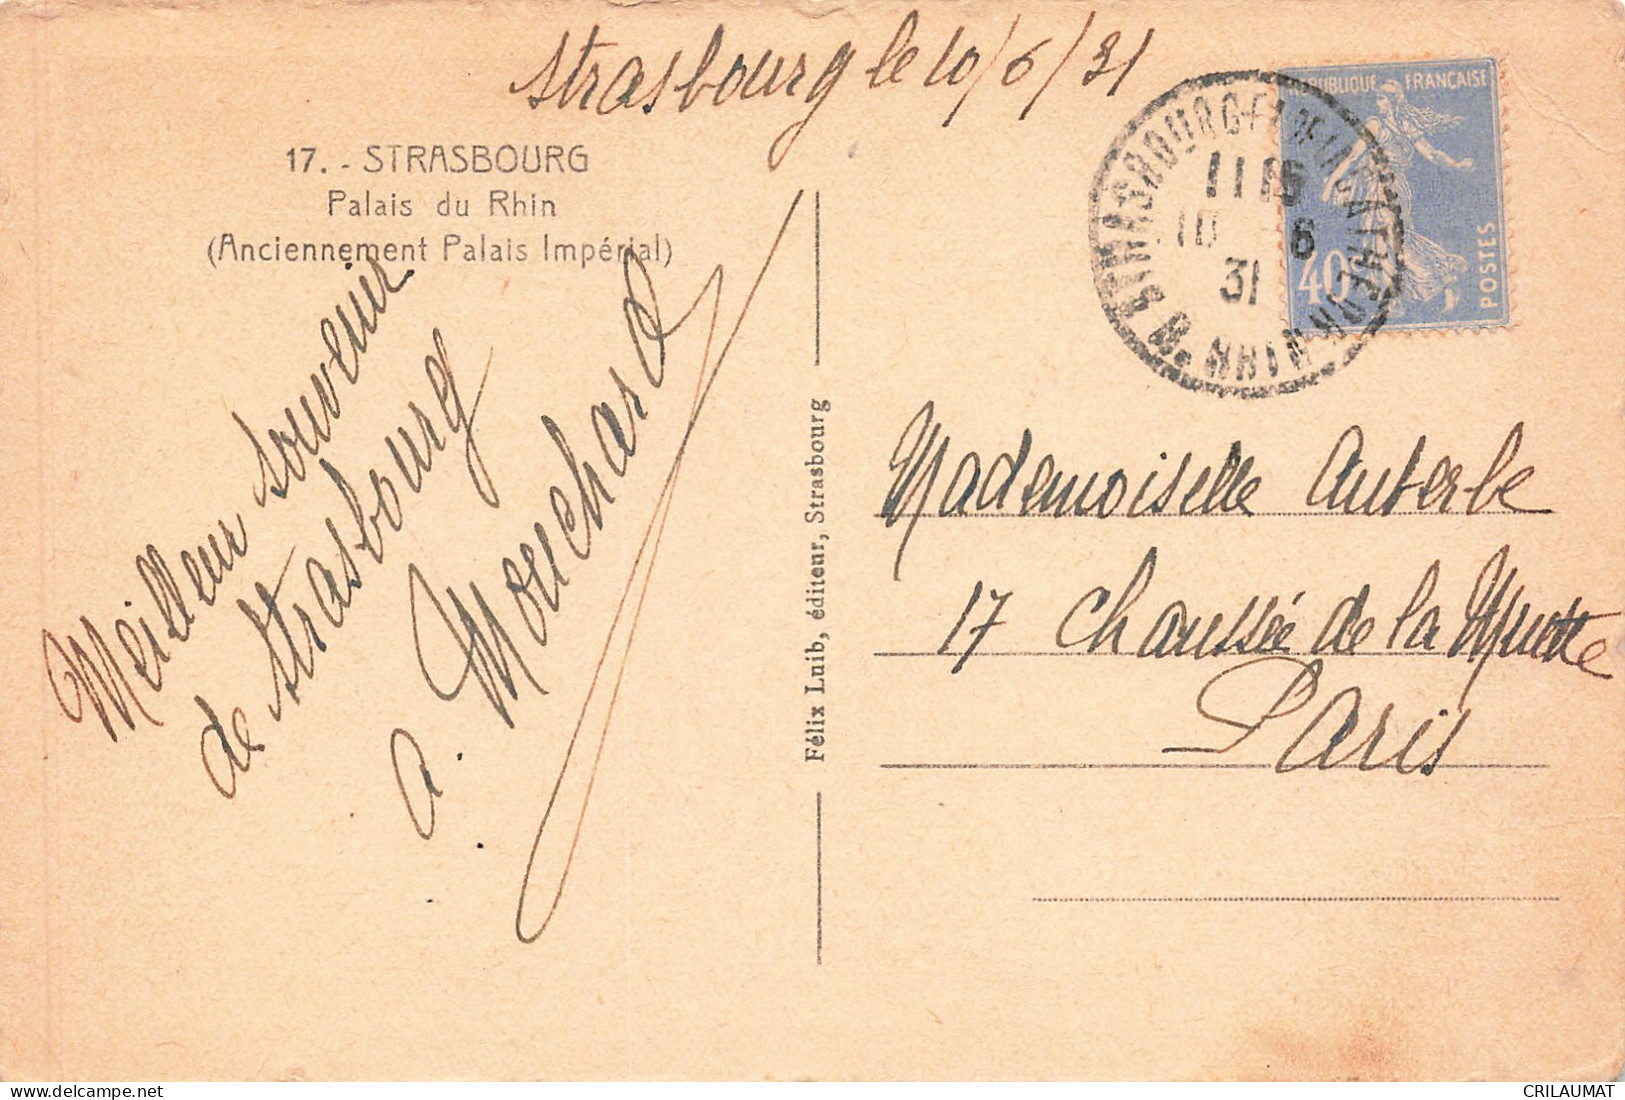 Strasbourg le 10/6/31
17. - STRASBOURG
Palais du Rhin
(Anciennement Palais Impérial)
Meilleur souvenir
de Strasbourg
A. Mouchard
Félix Luib, éditeur, Strasbourg
RÉPUBLIQUE FRANÇAISE
40c
POSTES
STRASBOURG
11 15
10 6
31
Bs RHIN
Mademoiselle Auterbe
17 Chaussée de la Muette
Paris
CRILAUMAT